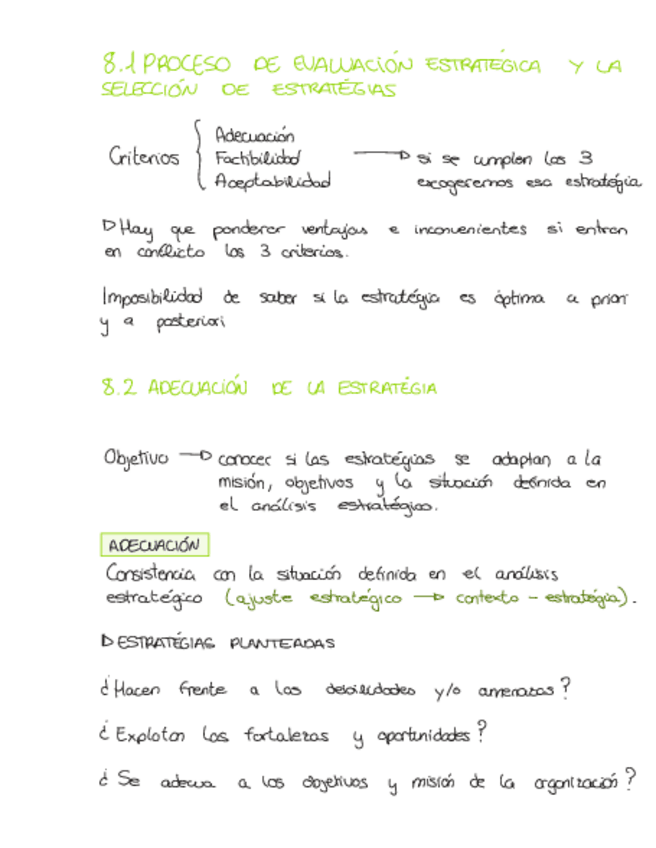 8.1 PROCESO DE EVALUACIÓN ESTRATÉGICA Y LA
SELECCIÓN DE ESTRATÉGIAS
Criterios
Adecuación
Factibilidad
Aceptabilidad
si se cumplen los 3
exogeremos esa estratégia
Hay que ponderar ventajas e inconvenientes si entran
en conflicto los 3 criterios.
Imposibilidad de saber si la estratégia es óptima a priori
y a posteriori
8.2 ADECUACIÓN DE LA ESTRATÉGIA
Objetivo → conocer si las estratégias se adaptan a la
misión, objetivos y la situación definida en
el análisis estratégico.
ADECUACIÓN
Consistencia con la situación definida en el análisis
estratégico (ajuste estratégico → contexto - estratégia).
ESTRATÉGIAS PLANTEADAS
¿Hacen frente a las debilidades y/o amenazas?
¿Explotan las fortalezas y oportunidades?
¿Se adecua a los objetivos y misión de la organización?